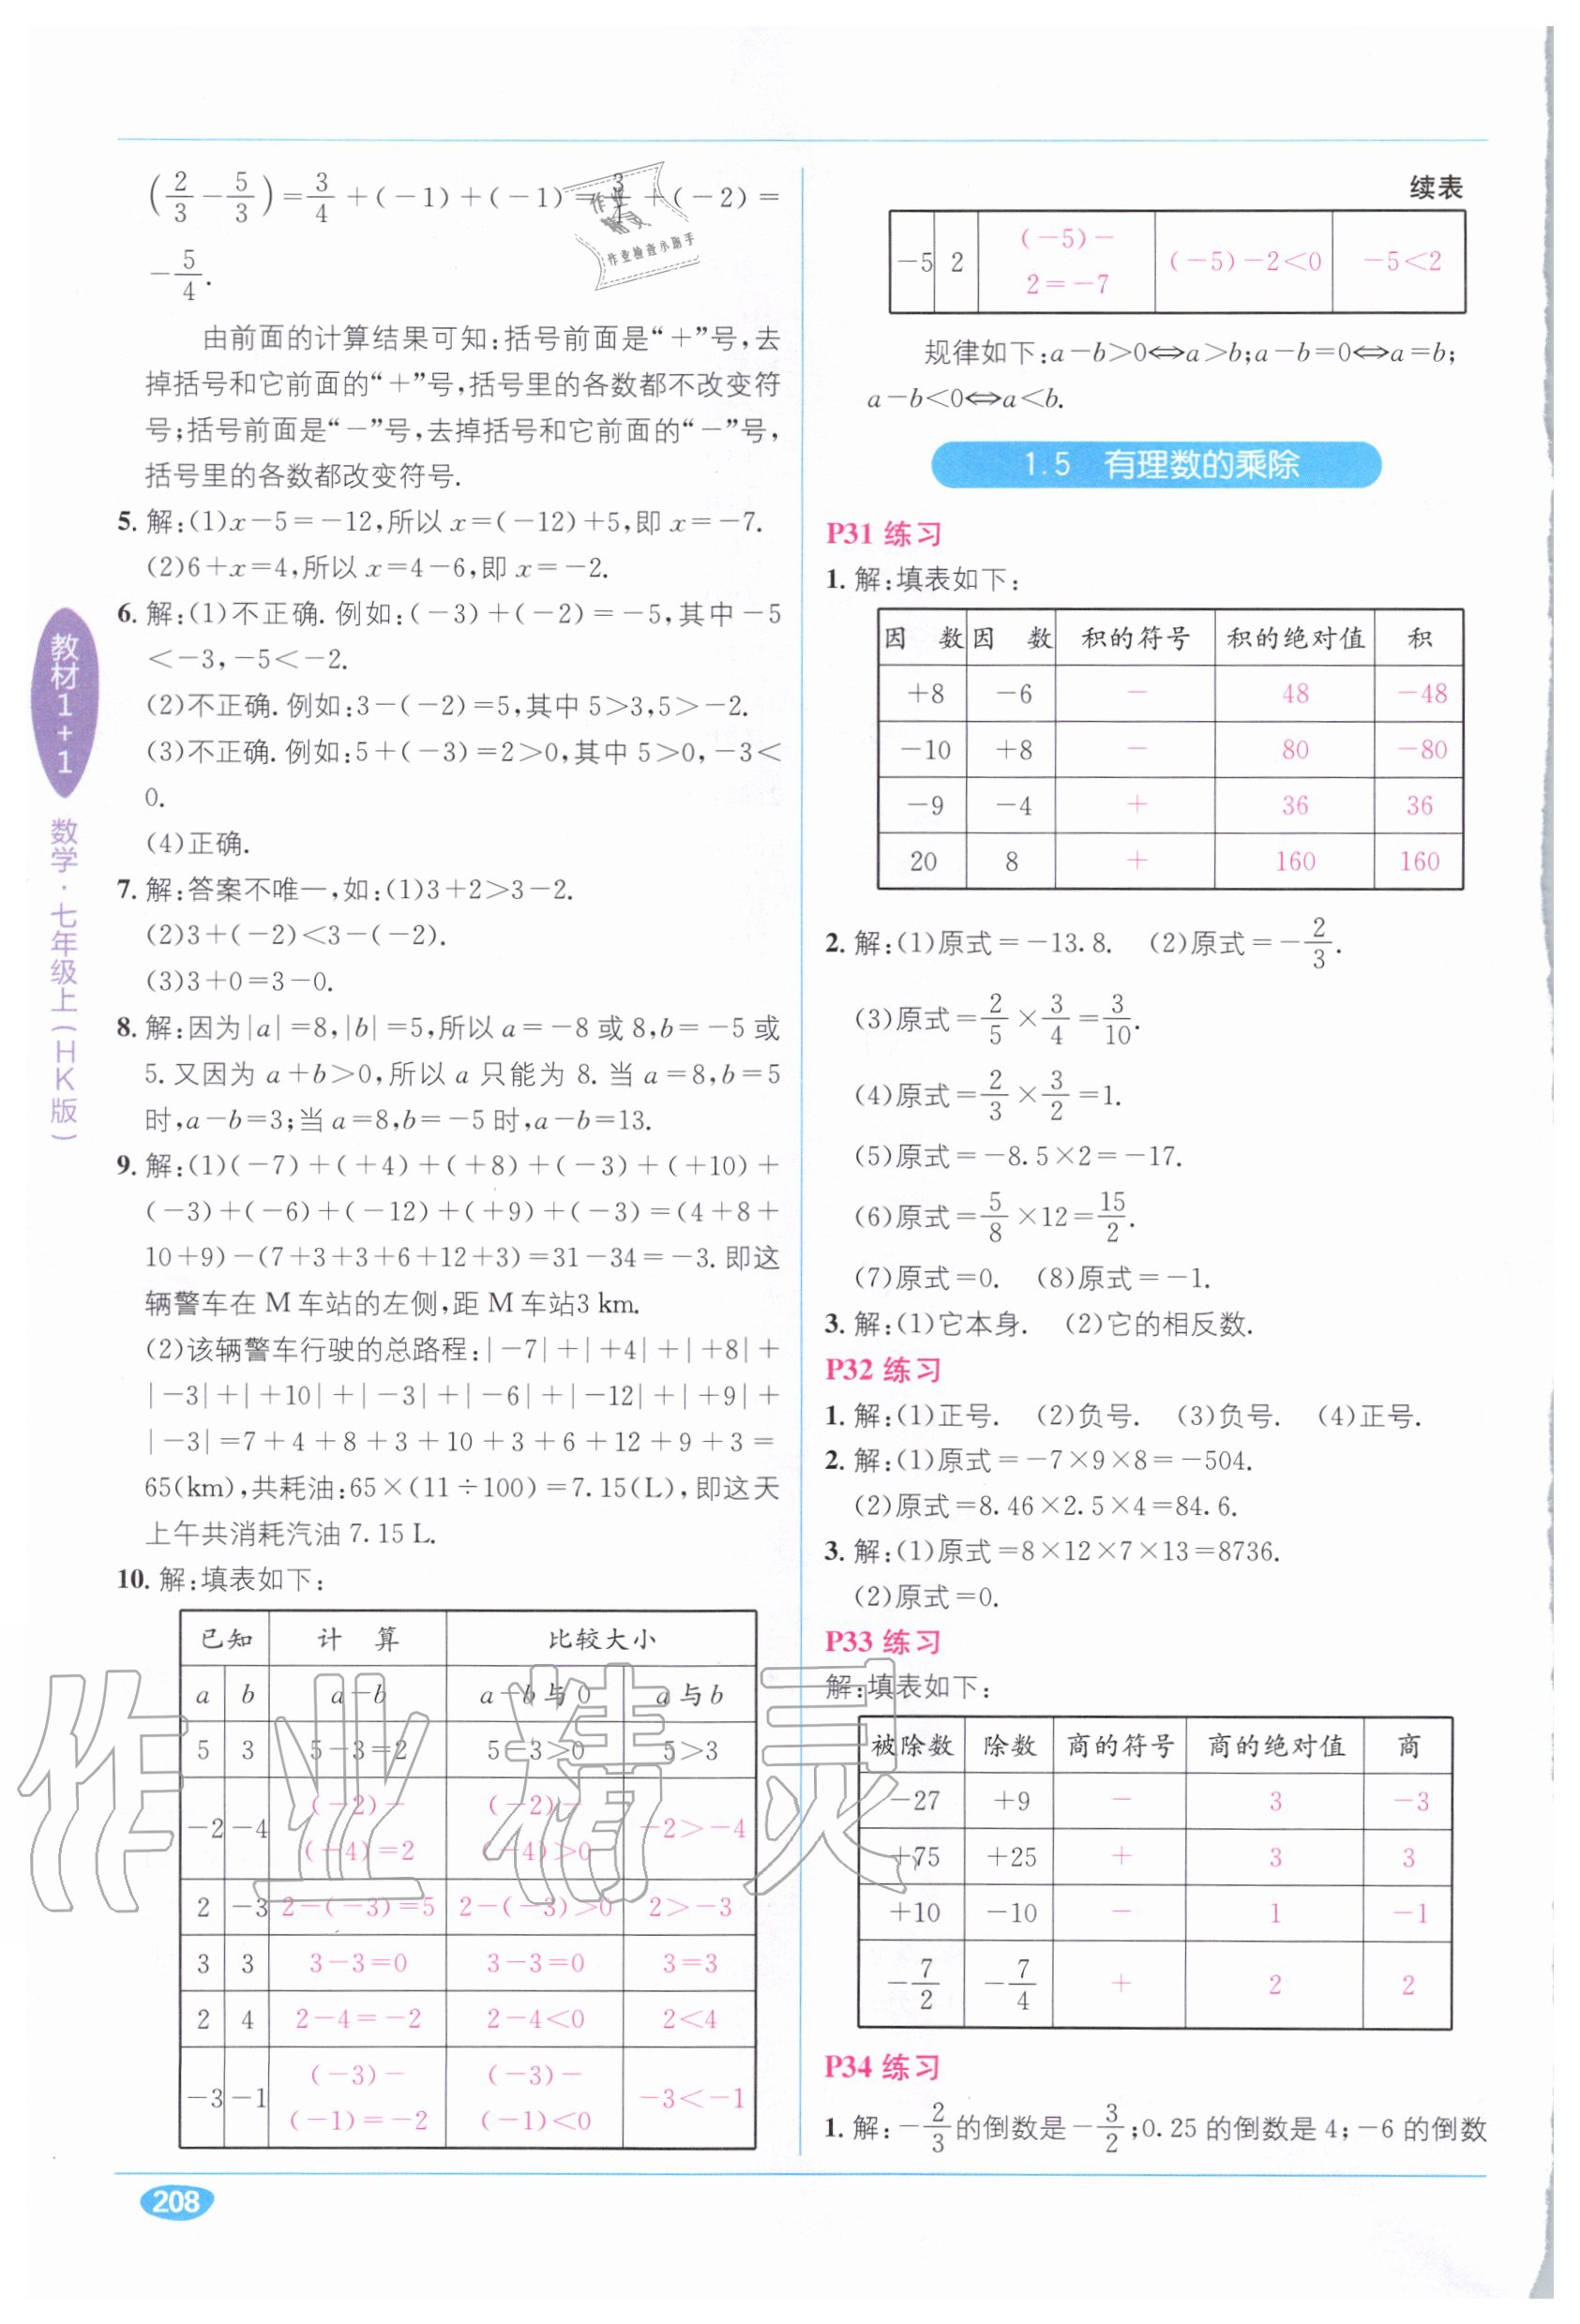 (2/3－5/3)＝3/4＋(－1)＋(－1)＝3/4＋(－2)＝
－5/4.
由前面的计算结果可知:括号前面是“＋”号,去
掉括号和它前面的“＋”号,括号里的各数都不改变符
号;括号前面是“－”号,去掉括号和它前面的“－”号,
括号里的各数都改变符号.
5. 解:(1)x－5＝－12,所以 x＝(－12)＋5,即 x＝－7.
(2)6＋x＝4,所以 x＝4－6,即 x＝－2.
6. 解:(1)不正确. 例如:(－3)＋(－2)＝－5,其中－5
＜－3,－5＜－2.
(2)不正确. 例如:3－(－2)＝5,其中 5＞3,5＞－2.
(3)不正确. 例如:5＋(－3)＝2＞0,其中 5＞0,－3＜
0.
(4)正确.
7. 解:答案不唯一,如:(1)3＋2＞3－2.
(2)3＋(－2)＜3－(－2).
(3)3＋0＝3－0.
8. 解:因为|a|＝8,|b|＝5,所以 a＝－8 或 8,b＝－5 或
5. 又因为 a＋b＞0,所以 a 只能为 8. 当 a＝8,b＝5
时,a－b＝3;当 a＝8,b＝－5 时,a－b＝13.
9. 解:(1)(－7)＋(＋4)＋(＋8)＋(－3)＋(＋10)＋
(－3)＋(－6)＋(－12)＋(＋9)＋(－3)＝(4＋8＋
10＋9)－(7＋3＋3＋6＋12＋3)＝31－34＝－3. 即这
辆警车在 M 车站的左侧,距 M 车站3 km.
(2)该辆警车行驶的总路程:|－7|＋|＋4|＋|＋8|＋
|－3|＋|＋10|＋|－3|＋|－6|＋|－12|＋|＋9|＋
|－3|＝7＋4＋8＋3＋10＋3＋6＋12＋9＋3＝
65(km),共耗油:65×(11÷100)＝7.15(L),即这天
上午共消耗汽油 7.15 L.
10. 解:填表如下:
已知 计 算 比较大小
a b a－b a－b与0 a与b
5 3 5－3＝2 5－3＞0 5＞3
－2 －4 (－2)－(－4)＝2 (－2)－(－4)＞0 －2＞－4
2 －3 2－(－3)＝5 2－(－3)＞0 2＞－3
3 3 3－3＝0 3－3＝0 3＝3
2 4 2－4＝－2 2－4＜0 2＜4
－3 －1 (－3)－(－1)＝－2 (－3)－(－1)＜0 －3＜－1
续表
－5 2 (－5)－2＝－7 (－5)－2＜0 －5＜2
规律如下:a－b＞0⇔a＞b;a－b＝0⇔a＝b;
a－b＜0⇔a＜b.
1.5 有理数的乘除
P31 练习
1. 解:填表如下:
因 数 因 数 积的符号 积的绝对值 积
＋8 －6 － 48 －48
－10 ＋8 － 80 －80
－9 －4 ＋ 36 36
20 8 ＋ 160 160
2. 解:(1)原式＝－13.8. (2)原式＝－2/3.
(3)原式＝2/5×3/4＝3/10.
(4)原式＝2/3×3/2＝1.
(5)原式＝－8.5×2＝－17.
(6)原式＝5/8×12＝15/2.
(7)原式＝0. (8)原式＝－1.
3. 解:(1)它本身. (2)它的相反数.
P32 练习
1. 解:(1)正号. (2)负号. (3)负号. (4)正号.
2. 解:(1)原式＝－7×9×8＝－504.
(2)原式＝8.46×2.5×4＝84.6.
3. 解:(1)原式＝8×12×7×13＝8736.
(2)原式＝0.
P33 练习
解:填表如下:
被除数 除数 商的符号 商的绝对值 商
－27 ＋9 － 3 －3
＋75 ＋25 ＋ 3 3
＋10 －10 － 1 －1
－7/2 －7/4 ＋ 2 2
P34 练习
1. 解:－2/3的倒数是－3/2;0.25 的倒数是 4;－6 的倒数
教材1+1
数学·七年级上(HK版)
208
作业精灵
作业检查小助手
作业精灵